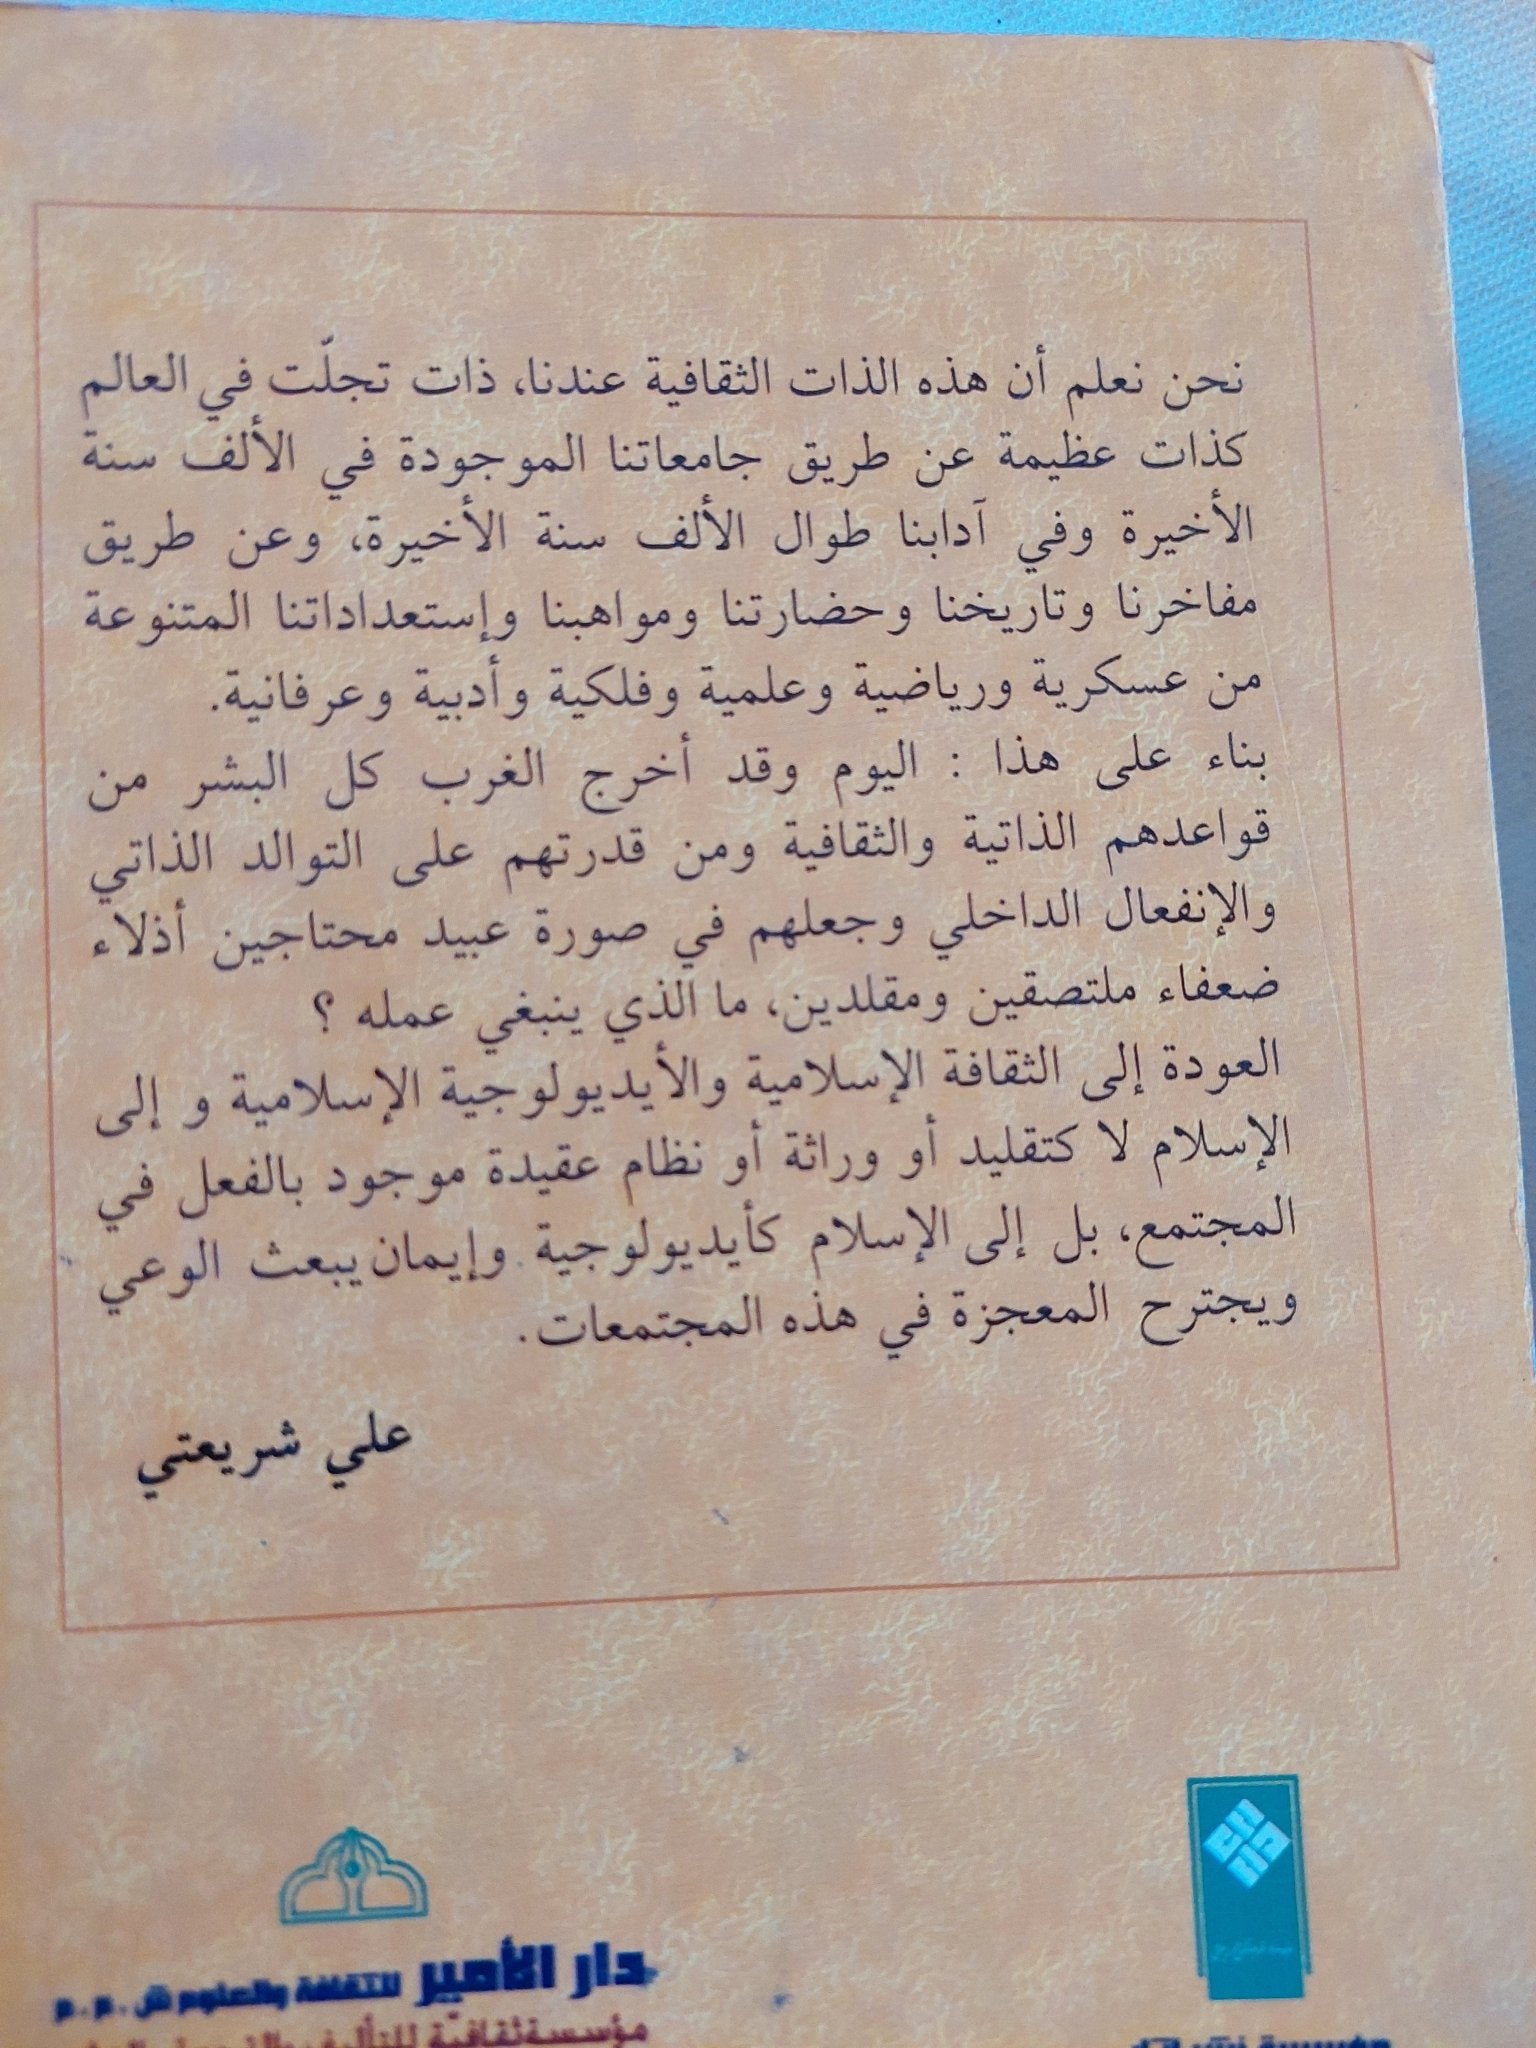 نحن نعلم أن هذه الذات الثقافية عندنا، ذات تجلّت في العالم
كذات عظيمة عن طريق جامعاتنا الموجودة في الألف سنة
الأخيرة وفي آدابنا طوال الألف سنة الأخيرة، وعن طريق
مفاخرنا وتاريخنا وحضارتنا ومواهبنا وإستعداداتنا المتنوعة
من عسكرية ورياضية وعلمية وفلكية وأدبية وعرفانية.
بناء على هذا : اليوم وقد أخرج الغرب كل البشر من
قواعدهم الذاتية والثقافية ومن قدرتهم على التوالد الذاتي
والإنفعال الداخلي وجعلهم في صورة عبيد محتاجين أذلاء
ضعفاء ملتصقين ومقلدين، ما الذي ينبغي عمله ؟
العودة إلى الثقافة الإسلامية والأيديولوجية الإسلامية و إلى
الإسلام لا كتقليد أو وراثة أو نظام عقيدة موجود بالفعل في
المجتمع، بل إلى الإسلام كأيديولوجية وإيمان يبعث الوعي
ويجترح المعجزة في هذه المجتمعات.
علي شريعتي
دار الأمير للثقافة والعلوم ش.م.م
مؤسسة ثقافيّة للتأليف